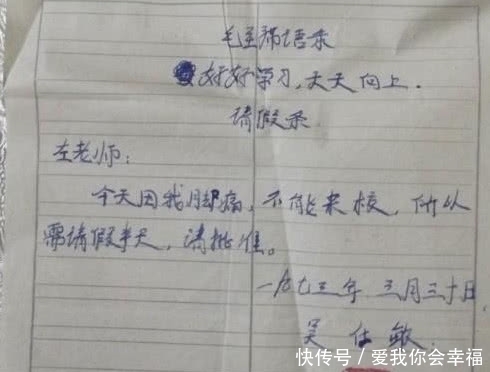 毛主席语录
好好学习,天天向上.
请假条
左老师:
今天因我脚痛,不能来校,所以
需请假半天,请批准。
一九七三年 三月三十日
吴仕敏
快传号/爱我你会幸福